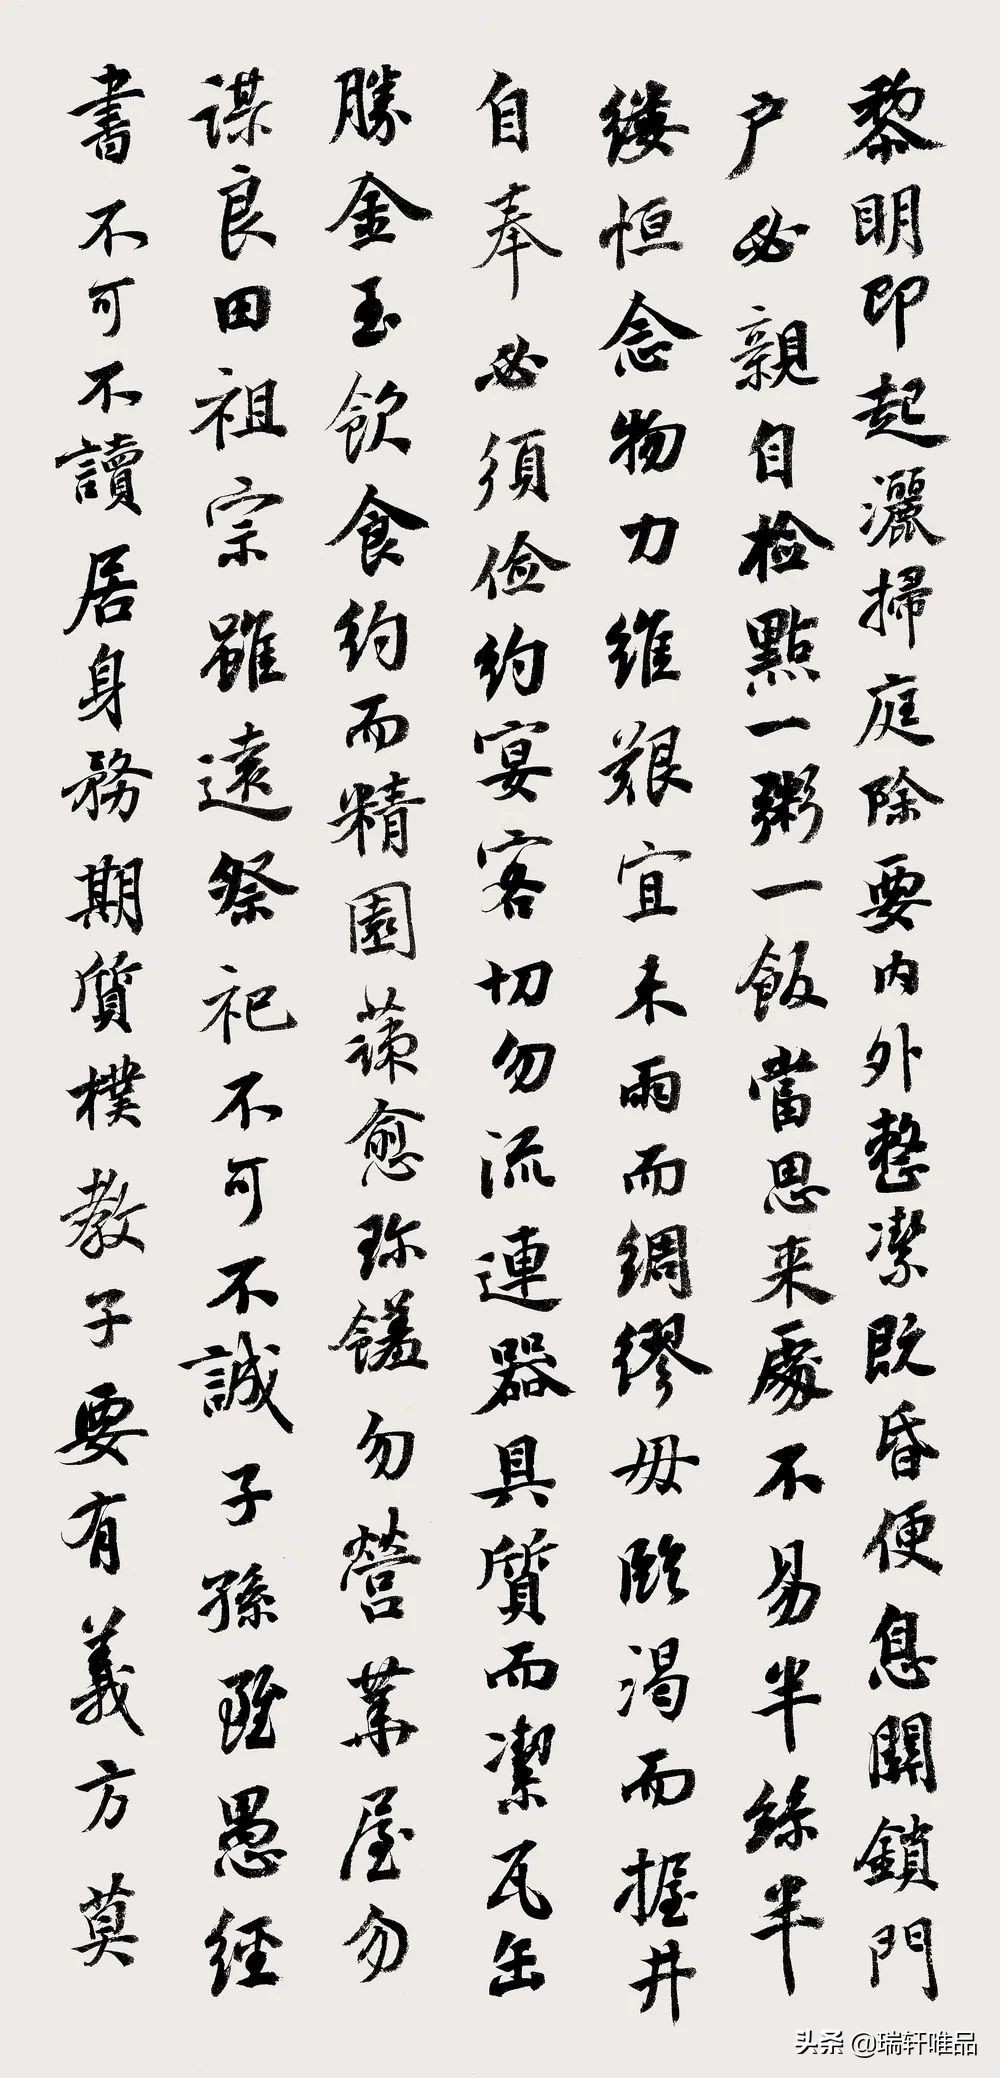 黎明即起灑掃庭除要内外整潔既昏便息關鎖門
户必親自檢點一粥一飯當思来處不易半絲半
縷恒念物力維艱宜未雨而綢繆毋臨渴而掘井
自奉必須儉約宴客切勿流連器具質而潔瓦缶
勝金玉飲食約而精園蔬愈珍饈勿營華屋勿
謀良田祖宗雖遠祭祀不可不誠子孫雖愚經
書不可不讀居身務期質樸教子要有義方莫
头条 @瑞轩唯品